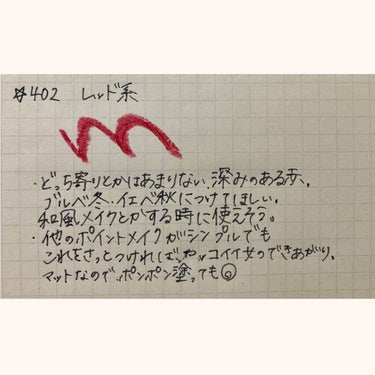 #402 レッド系
・どっち寄りとかはあまりない、深みのある赤。
ブルベ冬、イエベ秋につけてほしい。
和風メイクとかする時に使えそう。
・他のポイントメイクがシンプルでも
これをさっとつければ カッコイイ女のできあがり。
マットなので、ポンポン塗っても◎